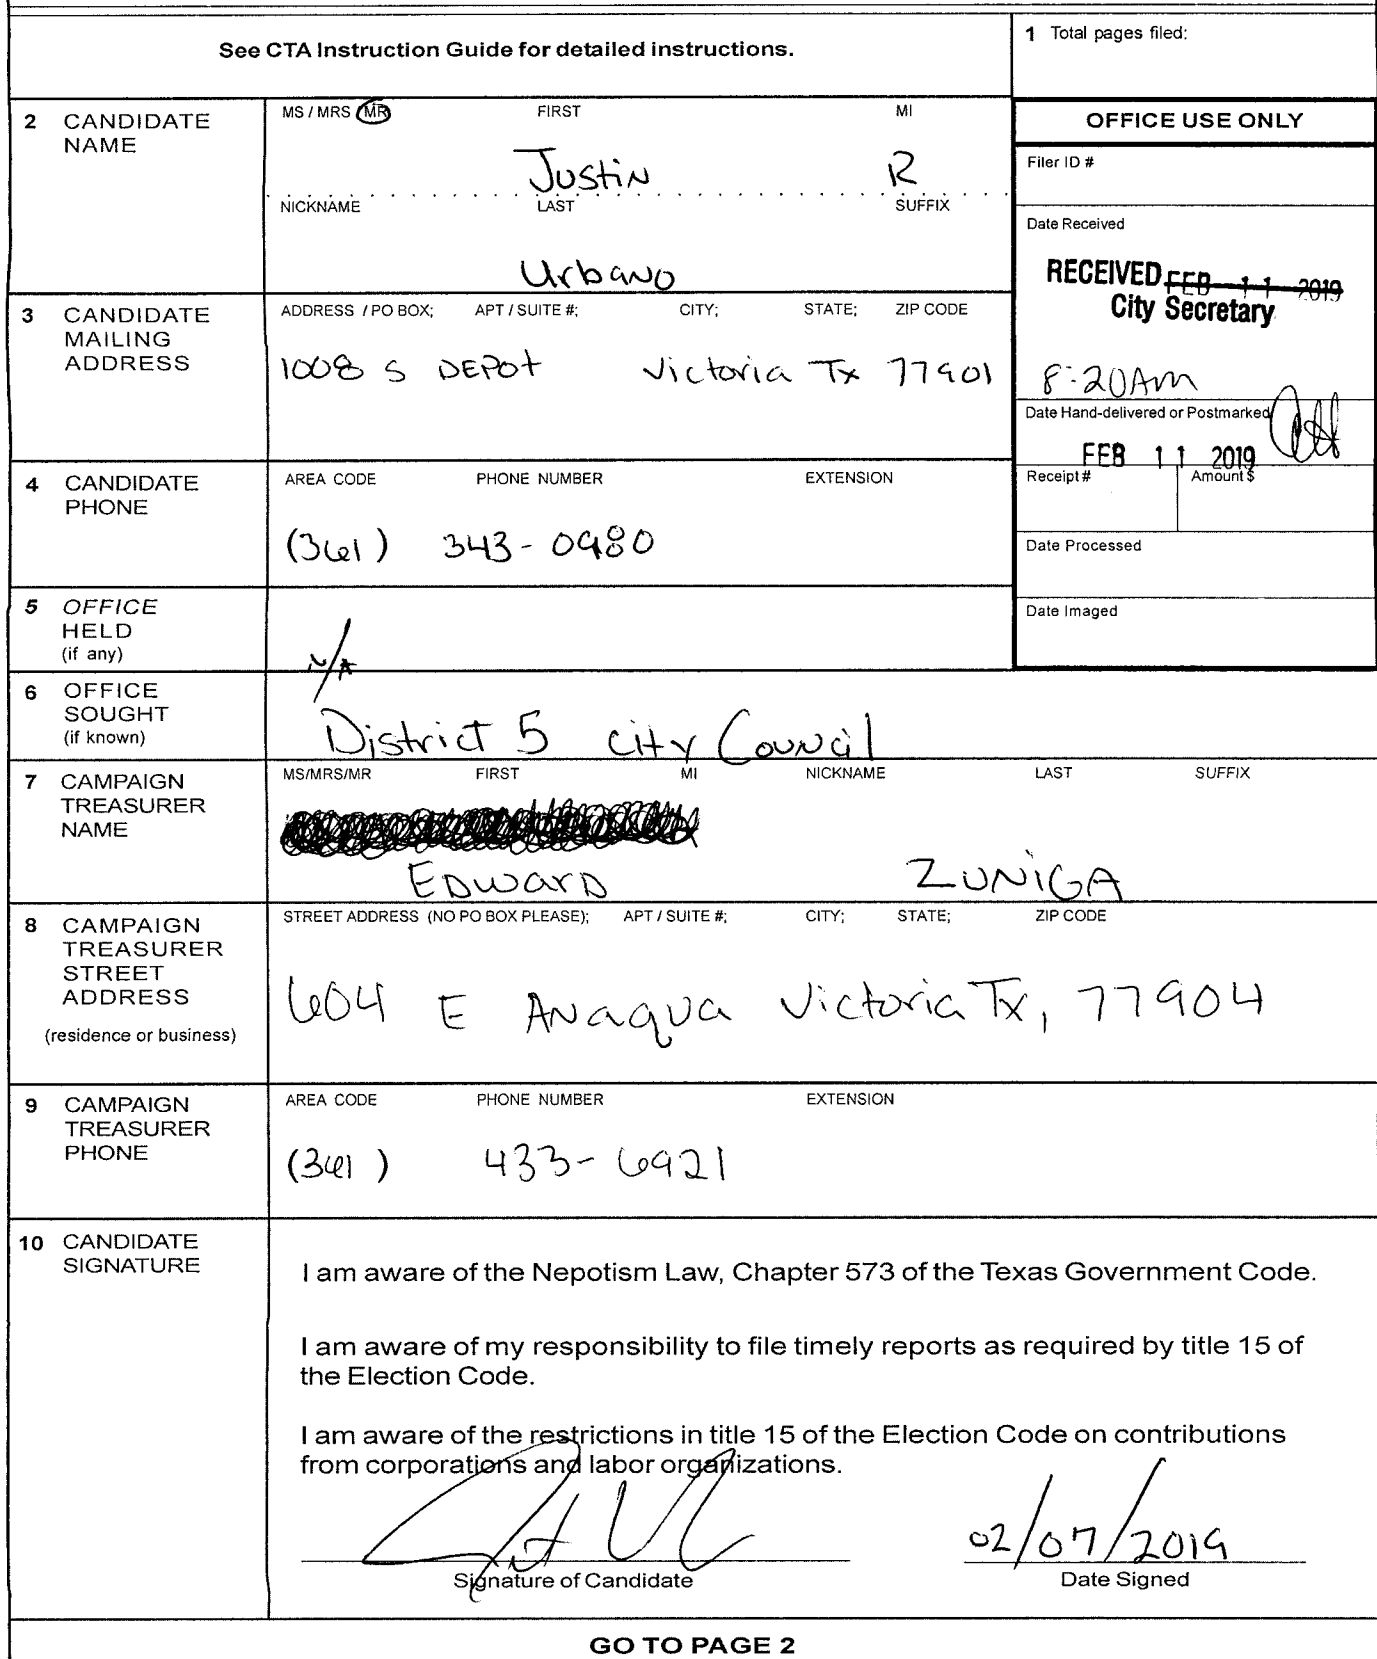 See CTA Instruction Guide for detailed instructions.
1 Total pages filed:
2 CANDIDATE NAME
MS / MRS / MR FIRST MI
Justin R
NICKNAME LAST SUFFIX
Urbano
OFFICE USE ONLY
Filer ID #
Date Received
RECEIVED FEB 11 2019
City Secretary
8:20AM
Date Hand-delivered or Postmarked
FEB 11 2019
Receipt # Amount $
Date Processed
Date Imaged
3 CANDIDATE MAILING ADDRESS
ADDRESS / PO BOX; APT / SUITE #; CITY; STATE; ZIP CODE
1008 S DEPOt Victoria Tx 77901
4 CANDIDATE PHONE
AREA CODE PHONE NUMBER EXTENSION
(361) 343-0980
5 OFFICE HELD (if any)
N/A
6 OFFICE SOUGHT (if known)
District 5 City Council
7 CAMPAIGN TREASURER NAME
MS/MRS/MR FIRST MI NICKNAME LAST SUFFIX
EDWARD ZUNIGA
8 CAMPAIGN TREASURER STREET ADDRESS (residence or business)
STREET ADDRESS (NO PO BOX PLEASE); APT / SUITE #; CITY; STATE; ZIP CODE
604 E ANaqua Victoria Tx, 77904
9 CAMPAIGN TREASURER PHONE
AREA CODE PHONE NUMBER EXTENSION
(361) 433-6921
10 CANDIDATE SIGNATURE
I am aware of the Nepotism Law, Chapter 573 of the Texas Government Code.
I am aware of my responsibility to file timely reports as required by title 15 of
the Election Code.
I am aware of the restrictions in title 15 of the Election Code on contributions
from corporations and labor organizations.
02/07/2019
Signature of Candidate Date Signed
GO TO PAGE 2